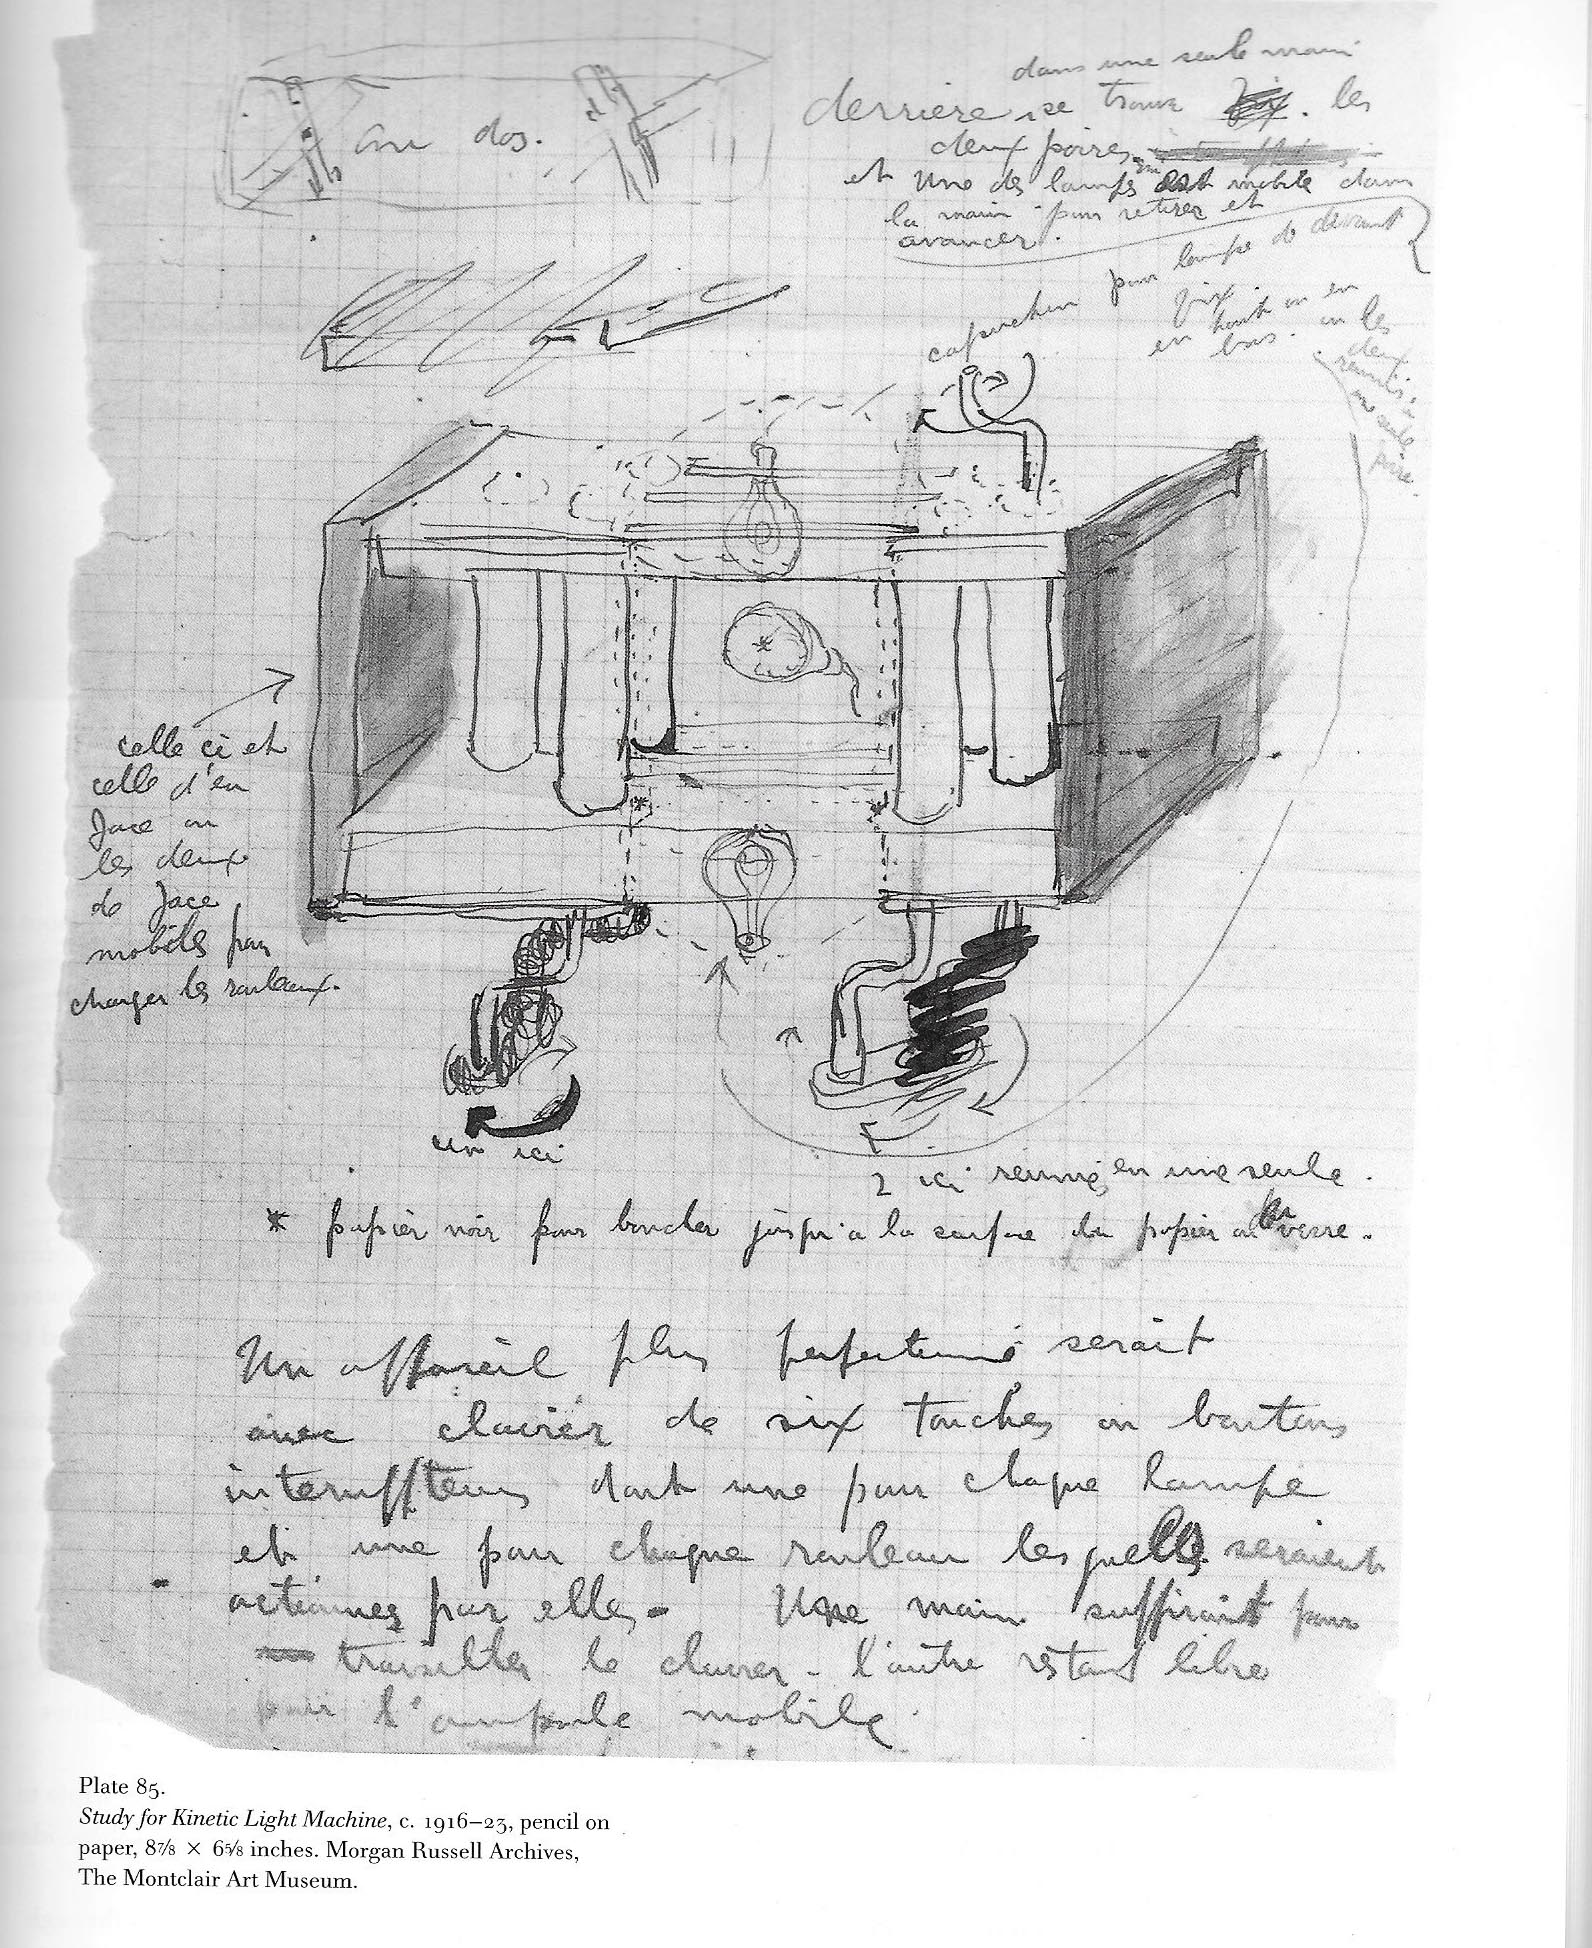 au dos.
dans une seule main
derriere se trouve les
deux poires
et une des lamps est mobile dans
la main pour retirer et
avancer.
capuchon pour lampe de devant
fix.
en haut ou en
bas. ou les
deux
reunis
seule
poire.
celle ci et
celle d'en
face ou
les deux
de face
mobiles pour
changer les rouleaux.
un ici
2 ici reunies en une seule.
* papier noir pour boucher jusqu'a la surface du papier ou verre.
Un appareil plus perfectionné serait
avec clavier de six touches ou boutons
interrupteurs dont une pour chaque lampe
et une pour chaque rouleau lesquelles seraient
actionnes par elles - Une main suffirait pour
travailler le clavier - l'autre restant libre
pour l'ampoule mobile.
Plate 85.
Study for Kinetic Light Machine, c. 1916–23, pencil on
paper, 8⅞ × 6⅝ inches. Morgan Russell Archives,
The Montclair Art Museum.